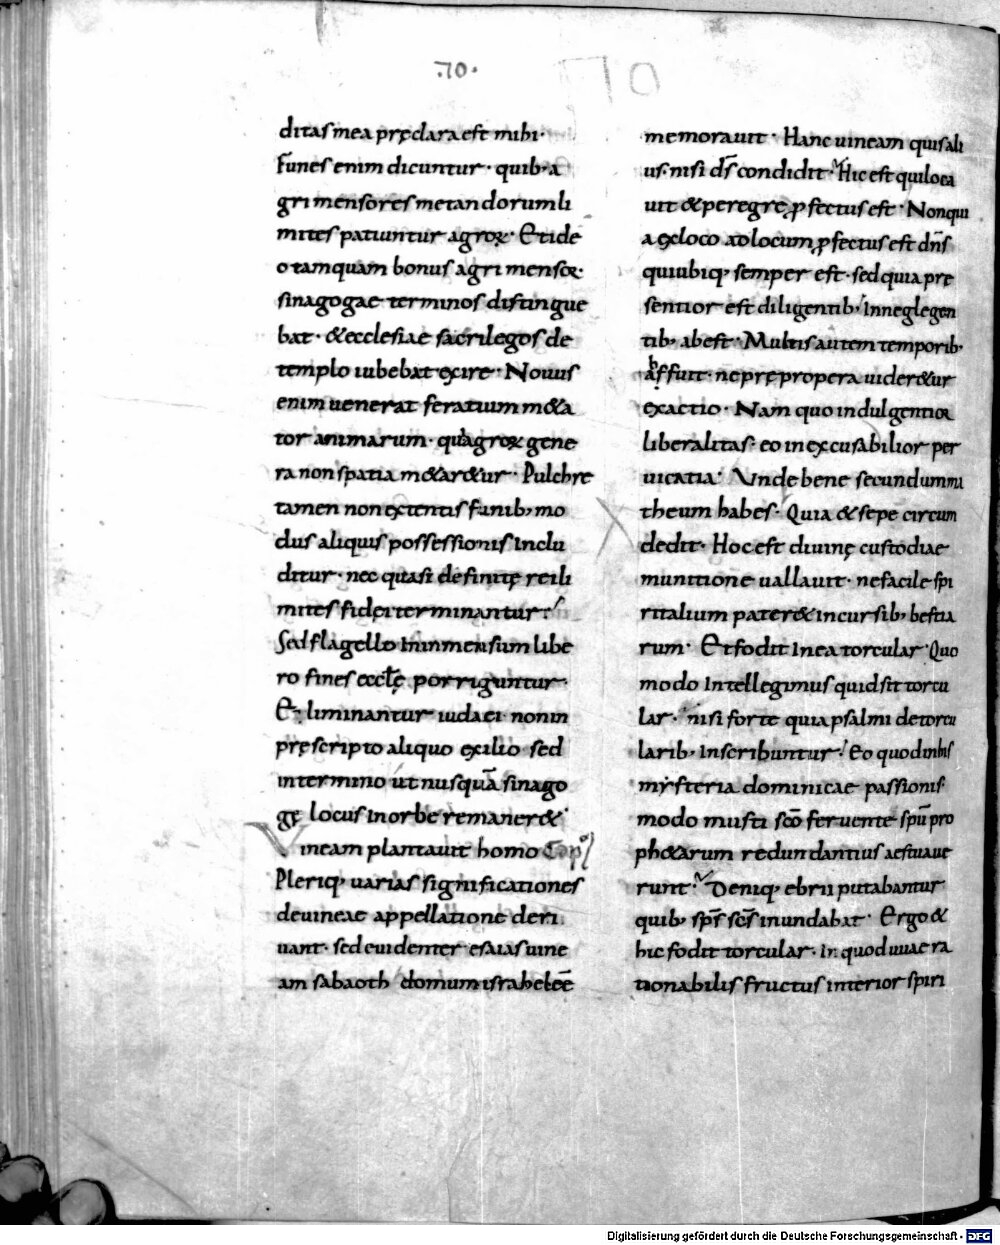 ·70·
ditas mea pręclara est mihi·
Funes enim dicuntur· quib; a
gri mensores metandorum li
mites patiuntur agroꝝ· Et ide
o tamquam bonus agri mensor·
sinagogae terminos distingue
bat· & ecclesiae sacrilegos de
templo iubebat exire· Nouus
enim uenerat feratuum m&a
tor animarum· qui agroꝝ gene
ra non spatia m&ar&ur· Pulchre
tamen non extentis funib; mo
dus aliquis possessionis inclu
ditur· nec quasi definitę rei li
mites fidei terminantur·
Sed flagello in inmensum libe
ro fines eccłę porriguntur·
Et liminantur iudaei non in
pręscripto aliquo exilio sed
in termino ut nusquā sinago
gę locus in orbe remaner&·
Vineam plantauit homo Cap
Pleriq; uarias significationes
de uineae appellatione deri
uant· sed euidenter esaias uine
am sabaoth domum israhel eē
memorauit· Hanc uineam quis ali
us· nisi d̄s condidit· Hic est qui loca
uit & peregre ꝓfectus est· Non qui
a ex loco ad locum ꝓfectus est dn̄s
qui ubiq; semper est· sed quia pre
sentior est diligentib; In neglegen
tib; abest· Multis autem temporib;
affuit· ne pre propera uider&ur
exactio· Nam quo indulgentior
liberalitas· eo inexcusabilior per
uicatia· Vnde bene secundum ma
theum habes· Quia & sepe circum
dedit· Hoc est diuinę custodiae
munitione uallauit· ne facile spi
ritalium pater& incursib; bestia
rum· Et fodit in ea torcular· Quo
modo intellegimus quid sit torcu
lar· nisi forte quia psalmi de torcu
larib; inscribuntur· Eo quod in his
mysteria dominicae passionis
modo musti sc̄o feruente sp̄u pro
ph&arum redundantius aestuaue
runt· Deniq; ebrii putabantur
quib; sp̄s sc̄s inundabat· Ergo &
hic fodit torcular· in quod uuae ra
tionabilis fructus interior spiri
Digitalisierung gefördert durch die Deutsche Forschungsgemeinschaft - DFG